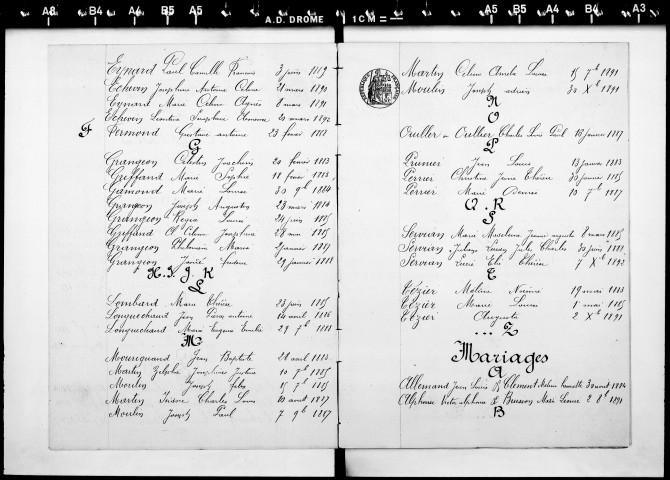 A3 B4 A4 B5 A5
A.D. DROME
1 CM =
A5 B5 A4 B4 A3
Eynard Paul Camille Francois 3 juin 1889
Echevin Joséphine Antoine Celine 21 mars 1890
Eynard Marie Celine Agnès 8 mars 1891
Echevin Leontine Josephine 20 mars 1892
F
Fermond Gustave antoine 23 fevrier
G
Grangeon Celestin Joachim 20 fevrier 1883
Griffand Marie Sophie 11 fevrier
Gamond Marie Louise 30 9b 1884
Grangeon Joseph Augustin 23 mars 1884
Grangeon Regis Louis 24 juin 1885
Griffand Josephine 28 1885
Grangeon Philomène Marie 2 janvier 1887
Grangeon 29 janvier 1888
H. I. J. K
L
Lombard Marie Elisée 23 juin 1885
Longuechaud Jean antoine 14 avril 1886
Longuechaud Marie Eugénie Emilie 29 7b 1888
M
Mouriquand Jean Baptiste 28 avril 1883
Martin Joséphine Justine 10 7b 1885
Moulin Joseph Jules 15 7b 1885
Martin Isidore Charles Louis 10 août 1887
Moulin Joseph Paul 7 9b 1887
Martin Celine Amela Louise 15 7b 1891
Moulin Joseph adrien 30 Xb 1891
N
O
Oullier ou Oullier Charles Louis Paul 16 janvier 1887
P
Prunier Jean Louis 13 janvier 1883
Perrier Christine Jenie Elisée 30 janvier 1885
Perrier Marie Denise 10 7b 1887
Q. R
S
Servian Marie Madeleine augusta 8 mars 1885
Servian Jules Charles 30 juin 1888
Servian Lucie Elisée 7 Xb 1892
T
Tézier Noémie 19 mai 1883
Tézier Marie Louise 1 mai 1885
Tézier Augusta 2 Xb 1891
... Z
Mariages
A
Allemand Jean Louis & Clement 30 aout 1884
Alphonse Victor alphonse & Buisson Marie Louise 2 8b 1891
B